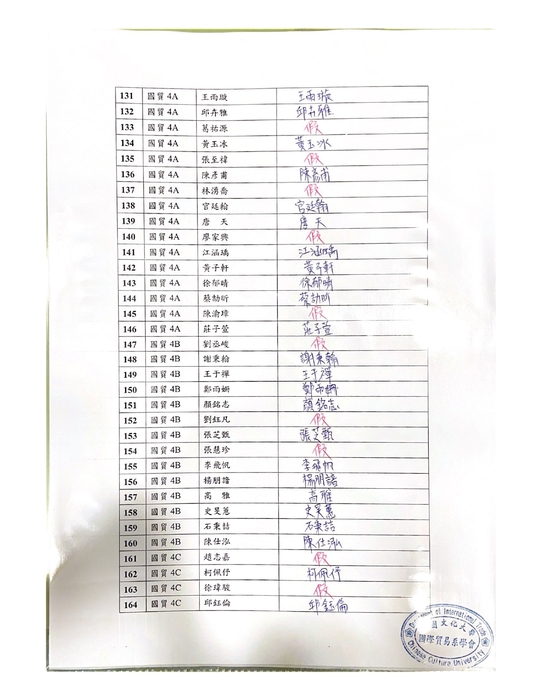 131 國貿 4A 王雨璇 王雨璇
132 國貿 4A 邱卉雅 邱卉雅
133 國貿 4A 葛祐源 假
134 國貿 4A 黃玉冰 黃玉冰
135 國貿 4A 張至禕 假
136 國貿 4A 陳彥甫 陳彥甫
137 國貿 4A 林湧喬 假
138 國貿 4A 官廷翰 官廷翰
139 國貿 4A 唐 天 唐天
140 國貿 4A 廖家興 假
141 國貿 4A 江涵瑀 江涵瑀
142 國貿 4A 黃子軒 黃子軒
143 國貿 4A 徐郁晴 徐郁晴
144 國貿 4A 蔡劼昕 蔡劼昕
145 國貿 4A 陳渝瑋 假
146 國貿 4A 莊子萱 莊子萱
147 國貿 4B 劉丞峻 假
148 國貿 4B 謝秉翰 謝秉翰
149 國貿 4B 王于禪 王于禪
150 國貿 4B 鄭雨姍 鄭雨姍
151 國貿 4B 顏銘志 顏銘志
152 國貿 4B 劉鈺凡 假
153 國貿 4B 張芝甄 張芝甄
154 國貿 4B 張慧珍 假
155 國貿 4B 李飛帆 李飛帆
156 國貿 4B 楊朋諳 楊朋諳
157 國貿 4B 高 雅 高雅
158 國貿 4B 史旻蕙 史旻蕙
159 國貿 4B 石秉喆 石秉喆
160 國貿 4B 陳仕泓 陳仕泓
161 國貿 4C 趙志嘉 假
162 國貿 4C 柯佩伃 柯佩伃
163 國貿 4C 徐瑋駿 假
164 國貿 4C 邱鈺倫 邱鈺倫
of International Trade
文化大學
國際貿易系學會
Chinese Culture University